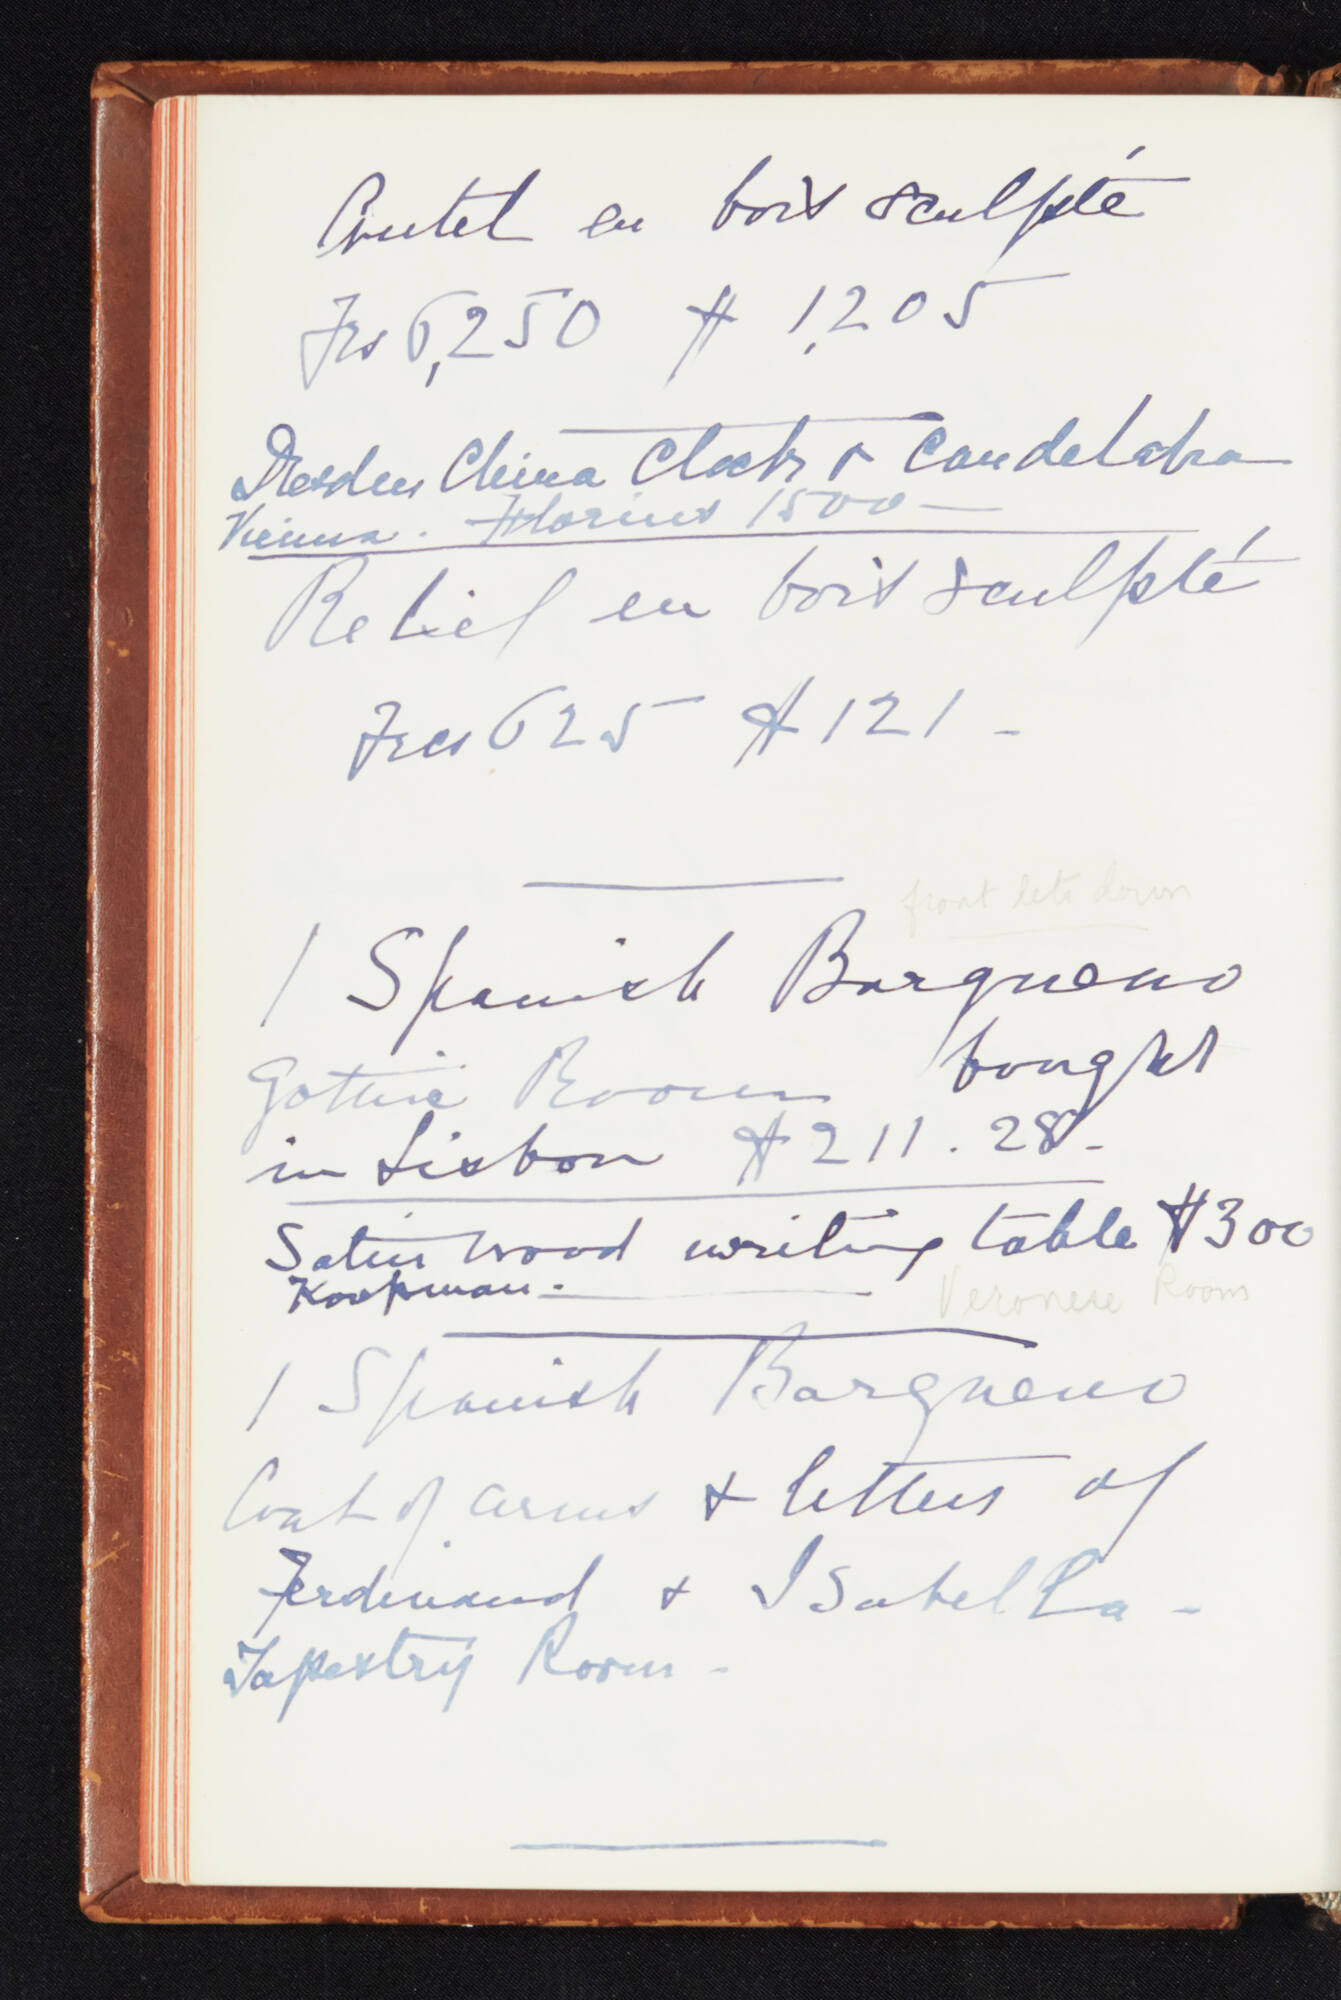 Autel en bois sculpté
Frs 6,250 $ 1,205
Dresden China Clock & Candelabra
Vienna. Florins 1500 —
Relief en bois sculpté
Frcs 625 $ 121 -
front lets down
1 Spanish Bargueno
Gothic Room bought
in Lisbon $ 211.28 -
Satin wood writing table $300
Koopman.
Veronese Room
1 Spanish Bargueno
Coat of arms & letters of
Ferdinand & Isabella -
Tapestry Room -